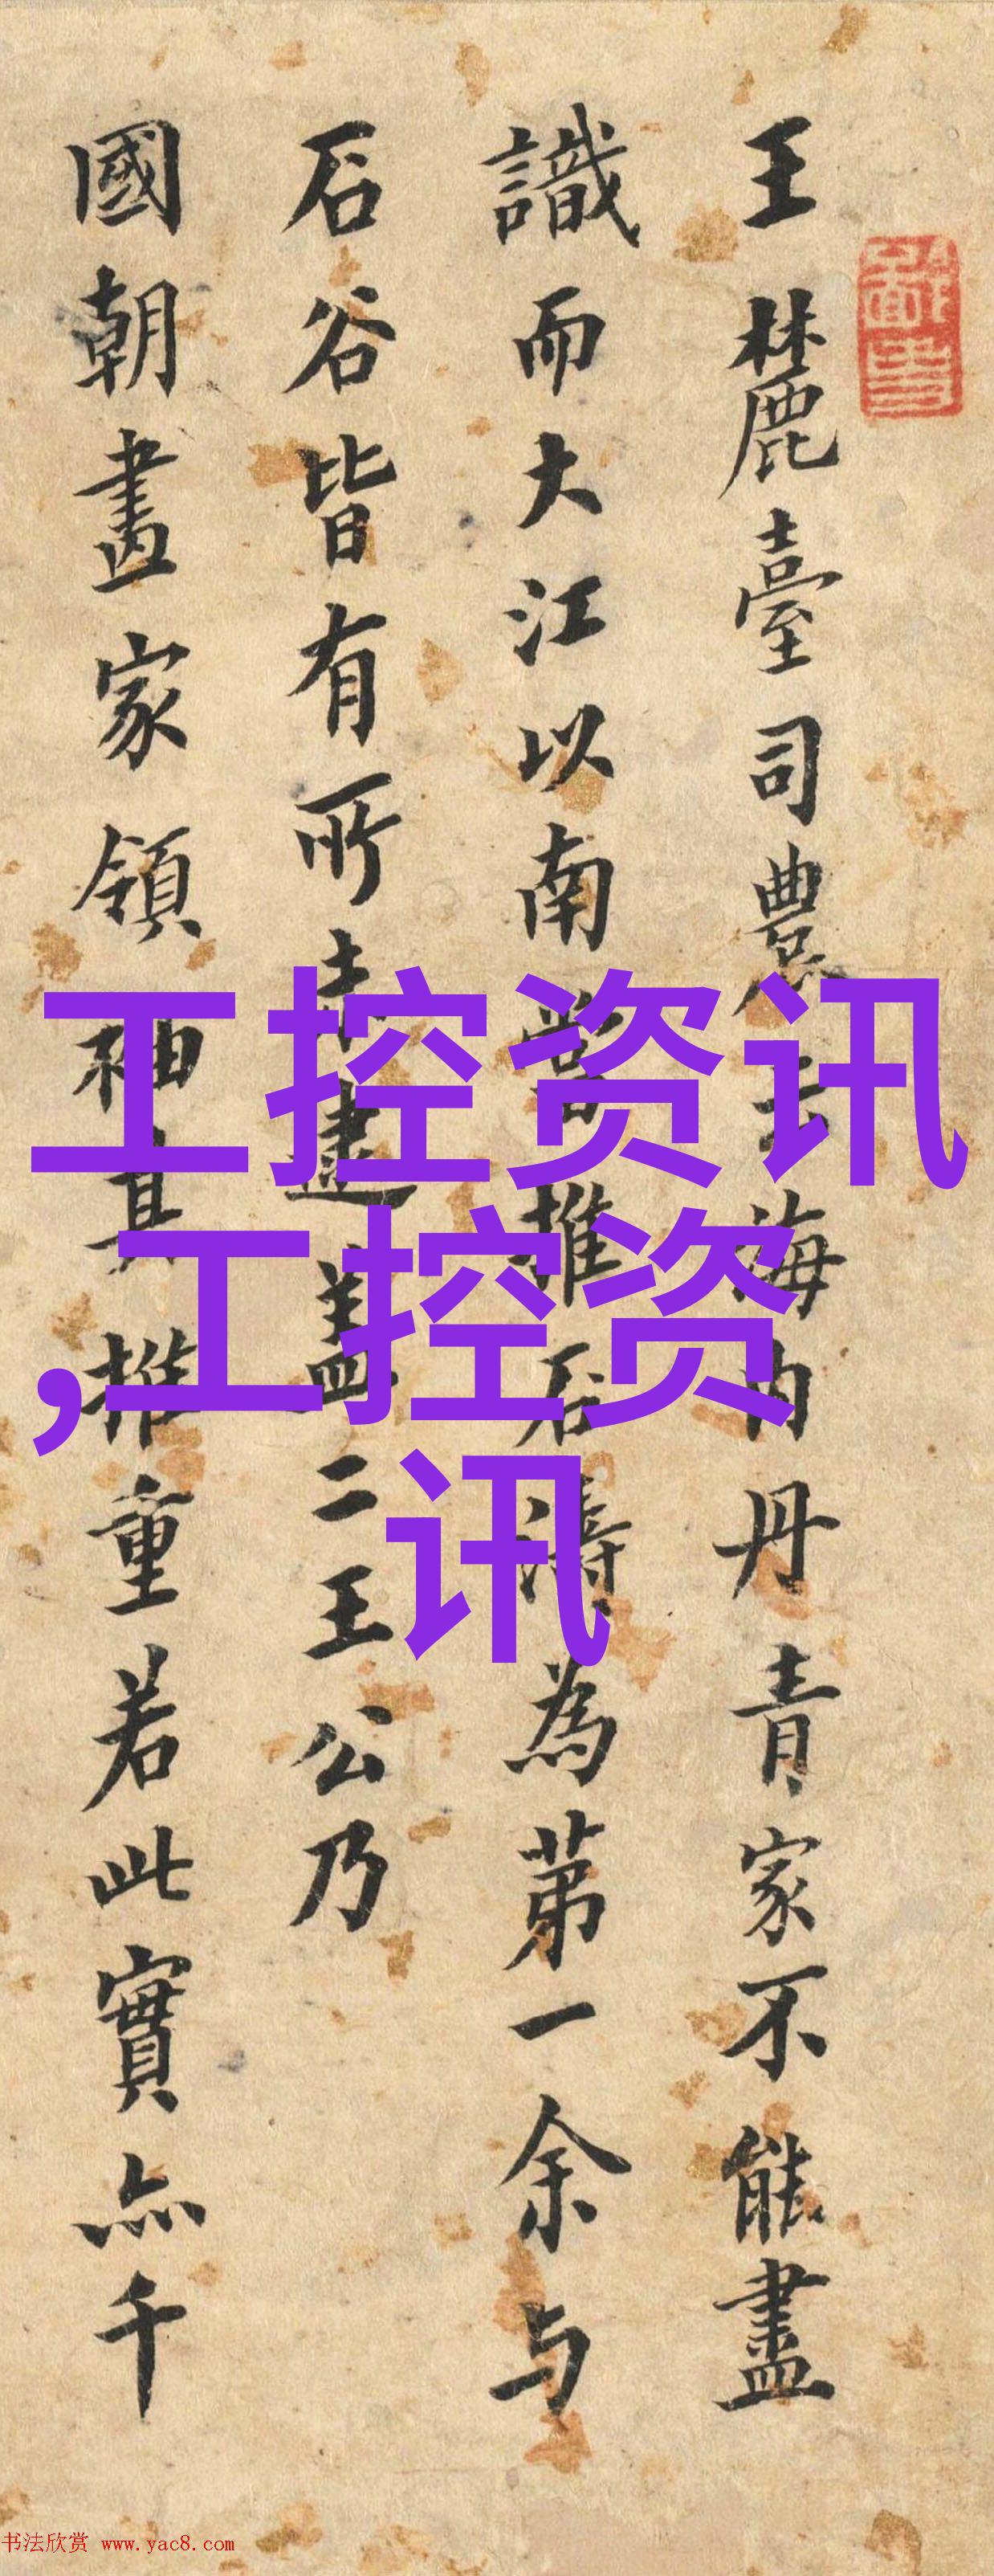 王麓臺司農云海内丹青家不能盡
識而大江以南當推石濤為第一余与
石谷皆有所未逮盖二王公乃
國朝畫家領袖其推重若此實亦千
工控资讯
,工控资
讯
书法欣赏 www.yac8.com